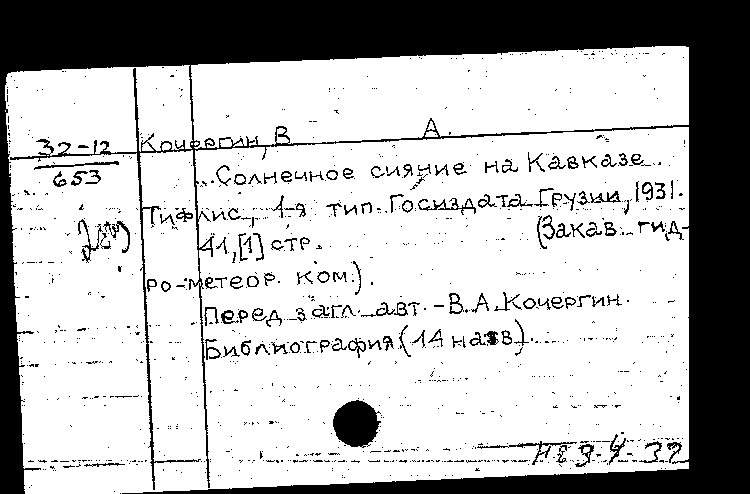 32-12
653
Кочергин, В А.
Солнечное сияние на Кавказе.
Тифлис, 1-я тип. Госиздата Грузии, 1931.
41,[1] стр. (Закав. гид-
ро-метеор. ком.).
Перед загл. авт. - В.А.Кочергин.
Библиография (14 назв).